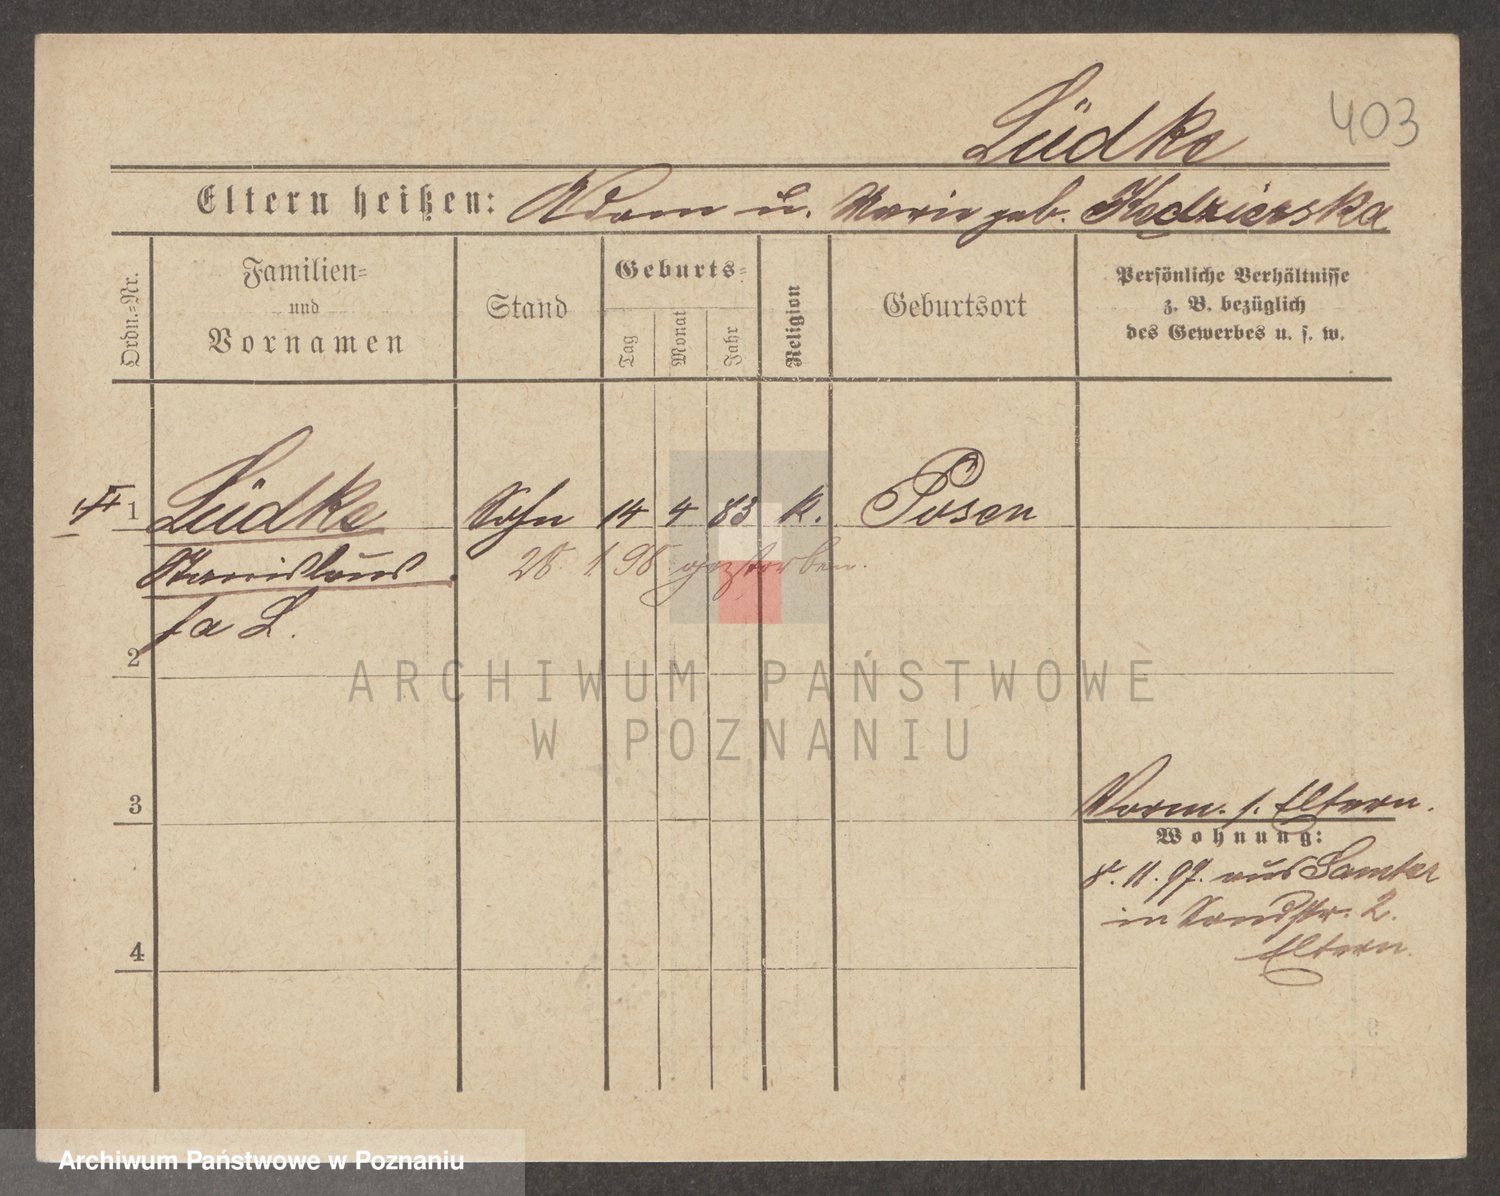 Lüdke 403
Eltern heißen: Adam u. Marie geb. Kędzierska
Ordn.-Nr.
Familien-
und
Vornamen
Stand
Geburts-
Tag
Monat
Jahr
Religion
Geburtsort
Persönliche Verhältnisse
z. B. bezüglich
des Gewerbes u. s. w.
1 Lüdke Sohn 14 4 83 k. Posen
Stanislaus.
28. 1. 98 gestorben.
2
ARCHIWUM PAŃSTWOWE
W POZNANIU
3
Vorm. s. Eltern.
Wohnung:
8. 11. 97. aus Samter
in Sandstr. 2.
4
Eltern.
Archiwum Państwowe w Poznaniu